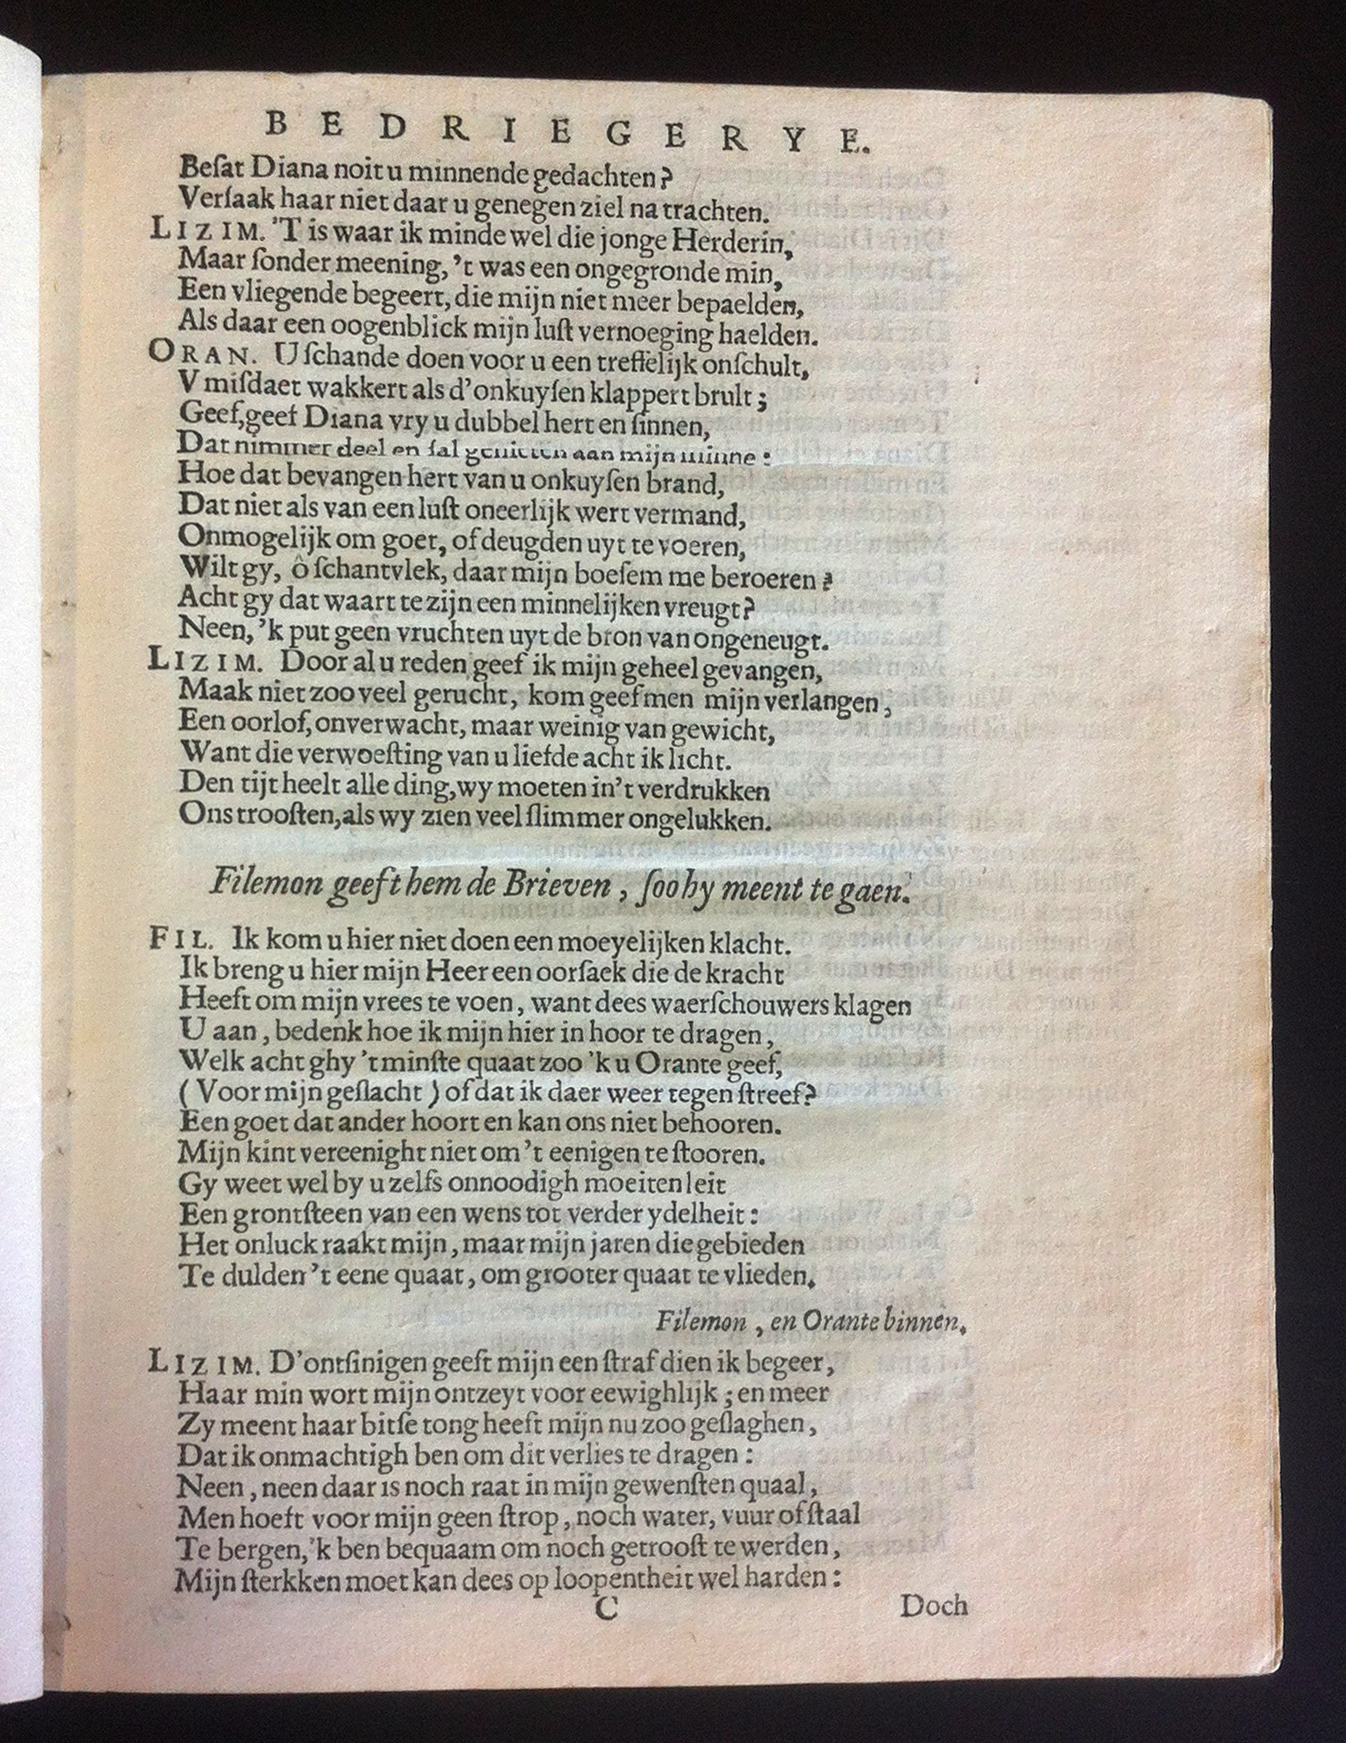 BEDRIEGERYE.
Beſat Diana noit u minnende gedachten?
Verſaak haar niet daar u genegen ziel na trachten.
LIZIM. 'T is waar ik minde wel die jonge Herderin,
Maar ſonder meening, 't was een ongegronde min,
Een vliegende begeert, die mijn niet meer bepaelden,
Als daar een oogenblick mijn luſt vernoeging haelden.
ORAN. U ſchande doen voor u een treffelijk onſchult,
V miſdaet wakkert als d'onkuyſen klappert brult;
Geef, geef Diana vry u dubbel hert en ſinnen,
Dat nimmer deel en ſal genieten aan mijn minne:
Hoe dat bevangen hert van u onkuyſen brand,
Dat niet als van een luſt oneerlijk wert vermand,
Onmogelijk om goet, of deugden uyt te voeren,
Wilt gy, ô ſchantvlek, daar mijn boeſem me beroeren?
Acht gy dat waart te zijn een minnelijken vreugt?
Neen, 'k put geen vruchten uyt de bron van ongeneugt.
LIZIM. Door al u reden geef ik mijn geheel gevangen,
Maak niet zoo veel gerucht, kom geef men mijn verlangen,
Een oorlof, onverwacht, maar weinig van gewicht,
Want die verwoeſting van u liefde acht ik licht.
Den tijt heelt alle ding, wy moeten in't verdrukken
Ons trooſten, als wy zien veel ſlimmer ongelukken.
Filemon geeft hem de Brieven, ſoo hy meent te gaen.
FIL. Ik kom u hier niet doen een moeyelijken klacht.
Ik breng u hier mijn Heer een oorſaek die de kracht
Heeft om mijn vrees te voen, want dees waerſchouwers klagen
U aan, bedenk hoe ik mijn hier in hoor te dragen,
Welk acht ghy 't minſte quaat zoo 'k u Orante geef,
(Voor mijn geſlacht) of dat ik daer weer tegen ſtreef?
Een goet dat ander hoort en kan ons niet behooren.
Mijn kint vereenight niet om 't eenigen te ſtooren.
Gy weet wel by u zelfs onnoodigh moeiten leit
Een grontſteen van een wens tot verder ydelheit:
Het onluck raakt mijn, maar mijn jaren die gebieden
Te dulden 't eene quaat, om grooter quaat te vlieden.
Filemon, en Orante binnen.
LIZIM. D'ontſinigen geeft mijn een ſtraf dien ik begeer,
Haar min wort mijn ontzeyt voor eewighlijk; en meer
Zy meent haar bitſe tong heeft mijn nu zoo geſlaghen,
Dat ik onmachtigh ben om dit verlies te dragen:
Neen, neen daar is noch raat in mijn gewenſten quaal,
Men hoeft voor mijn geen ſtrop, noch water, vuur of ſtaal
Te bergen, 'k ben bequaam om noch getrooſt te werden,
Mijn ſterkken moet kan dees op loopentheit wel harden:
C Doch